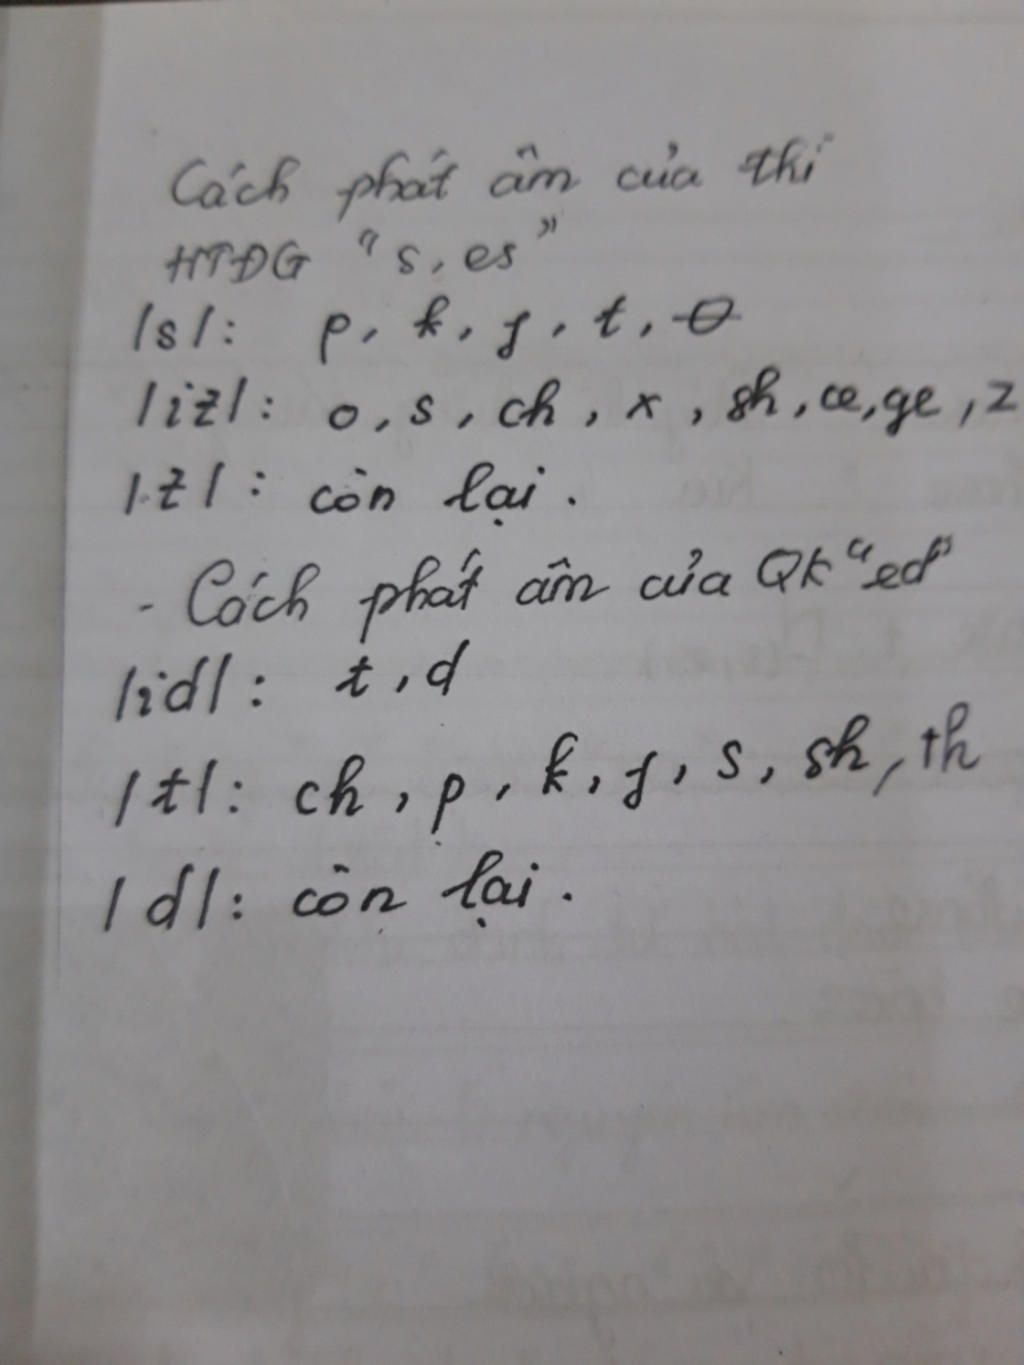 Cách phát âm của thì
HTĐG "s, es"
/s/: p, k, f, t, θ
/iz/: o, s, ch, x, sh, ce, ge, z
/z/: còn lại.
- Cách phát âm của QK "ed"
/id/: t, d
/t/: ch, p, k, f, s, sh, th
/d/: còn lại.